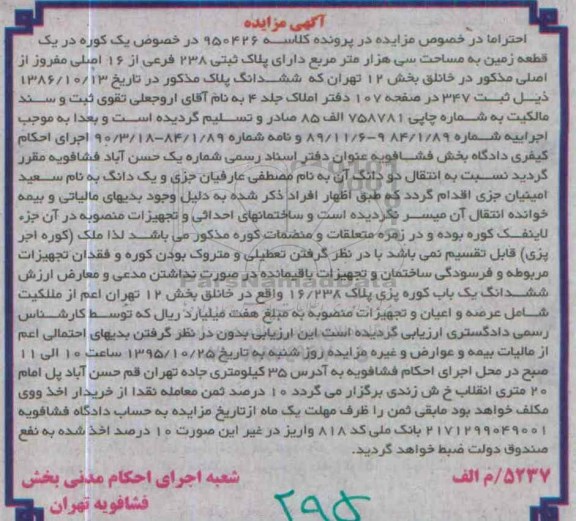 آگهی مزایده
احتراما در خصوص مزایده در پرونده کلاسه ۹۵۰۴۲۶ در خصوص یک کوره در یک
قطعه زمین به مساحت سی هزار متر مربع دارای پلاک ثبتی ۲۳۸ فرعی از ۱۶ اصلی مفروز از
اصلی مذکور در خانلق بخش ۱۲ تهران که ششدانگ پلاک مذکور در تاریخ ۱۳۸۶/۱۰/۱۳
ذیل ثبت ۳۴۷ در صفحه ۱۰۷ دفتر املاک جلد ۴ به نام آقای اروجعلی تقوی ثبت و سند
مالکیت به شماره چاپی ۷۵۸۷۸۱ الف ۸۵ صادر و تسلیم گردیده است و بعدا به موجب
اجراییه شماره ۸۴/۱/۸۹ ۸۹/۱۱/۶-۹ و نامه شماره ۸۴/۱/۸۹-۹۰/۳/۱۸ اجرای احکام
کیفری دادگاه بخش فشافویه عنوان دفتر اسناد رسمی شماره یک حسن آباد فشافویه مقرر
گردید نسبت به انتقال دو دانگ آن به نام مصطفی عارفیان جزی و یک دانگ به نام سعید
امینیان جزی اقدام گردد که طبق اظهار افراد ذکر شده به دلیل وجود بدیهای مالیاتی و بیمه
خوانده انتقال آن میسر نگردیده است و ساختمانهای احداثی و تجهیزات منصوبه در آن جزء
لاینفک کوره بوده و در زمره متعلقات و منضمات کوره مذکور می باشد لذا ملک (کوره اجر
پزی) قابل تقسیم نمی باشد با در نظر گرفتن تعطیلی و متروک بودن کوره و فقدان تجهیزات
مربوطه و فرسودگی ساختمان و تجهیزات باقیمانده در صورت نداشتن مدعی و معارض ارزش
ششدانگ یک باب کوره پزی پلاک ۱۶/۲۳۸ واقع در خانلق بخش ۱۲ تهران اعم از مللکیت
شامل عرصه و اعیان و تجهیزات منصوبه به مبلغ هفت میلیارد ریال که توسط کارشناس
رسمی دادگستری ارزیابی گردیده است این ارزیابی بدون در نظر گرفتن بدیهای احتمالی اعم
از مالیات بیمه و عوارض و غیره مزایده روز شنبه به تاریخ ۱۳۹۵/۱۰/۲۵ ساعت ۱۰ الی ۱۱
صبح در محل اجرای احکام فشافویه به آدرس ۳۵ کیلومتری جاده تهران قم حسن آباد پل امام
۲۰ متری انقلاب خ ش زندی برگزار می گردد ۱۰ درصد ثمن معامله نقدا از خریدار اخذ ووی
مکلف خواهد بود مابقی ثمن را ظرف مهلت یک ماه ازتاریخ مزایده به حساب دادگاه فشافویه
۲۱۷۱۲۹۹۰۴۹۰۰۱ بانک ملی کد ۸۱۸ واریز در غیر این صورت ۱۰ درصد اخذ شده به نفع
صندوق دولت ضبط خواهد گردید.
۵۲۳۷/م الف
شعبه اجرای احکام مدنی بخش
فشافویه تهران
۲۹۵
ParsNamadData